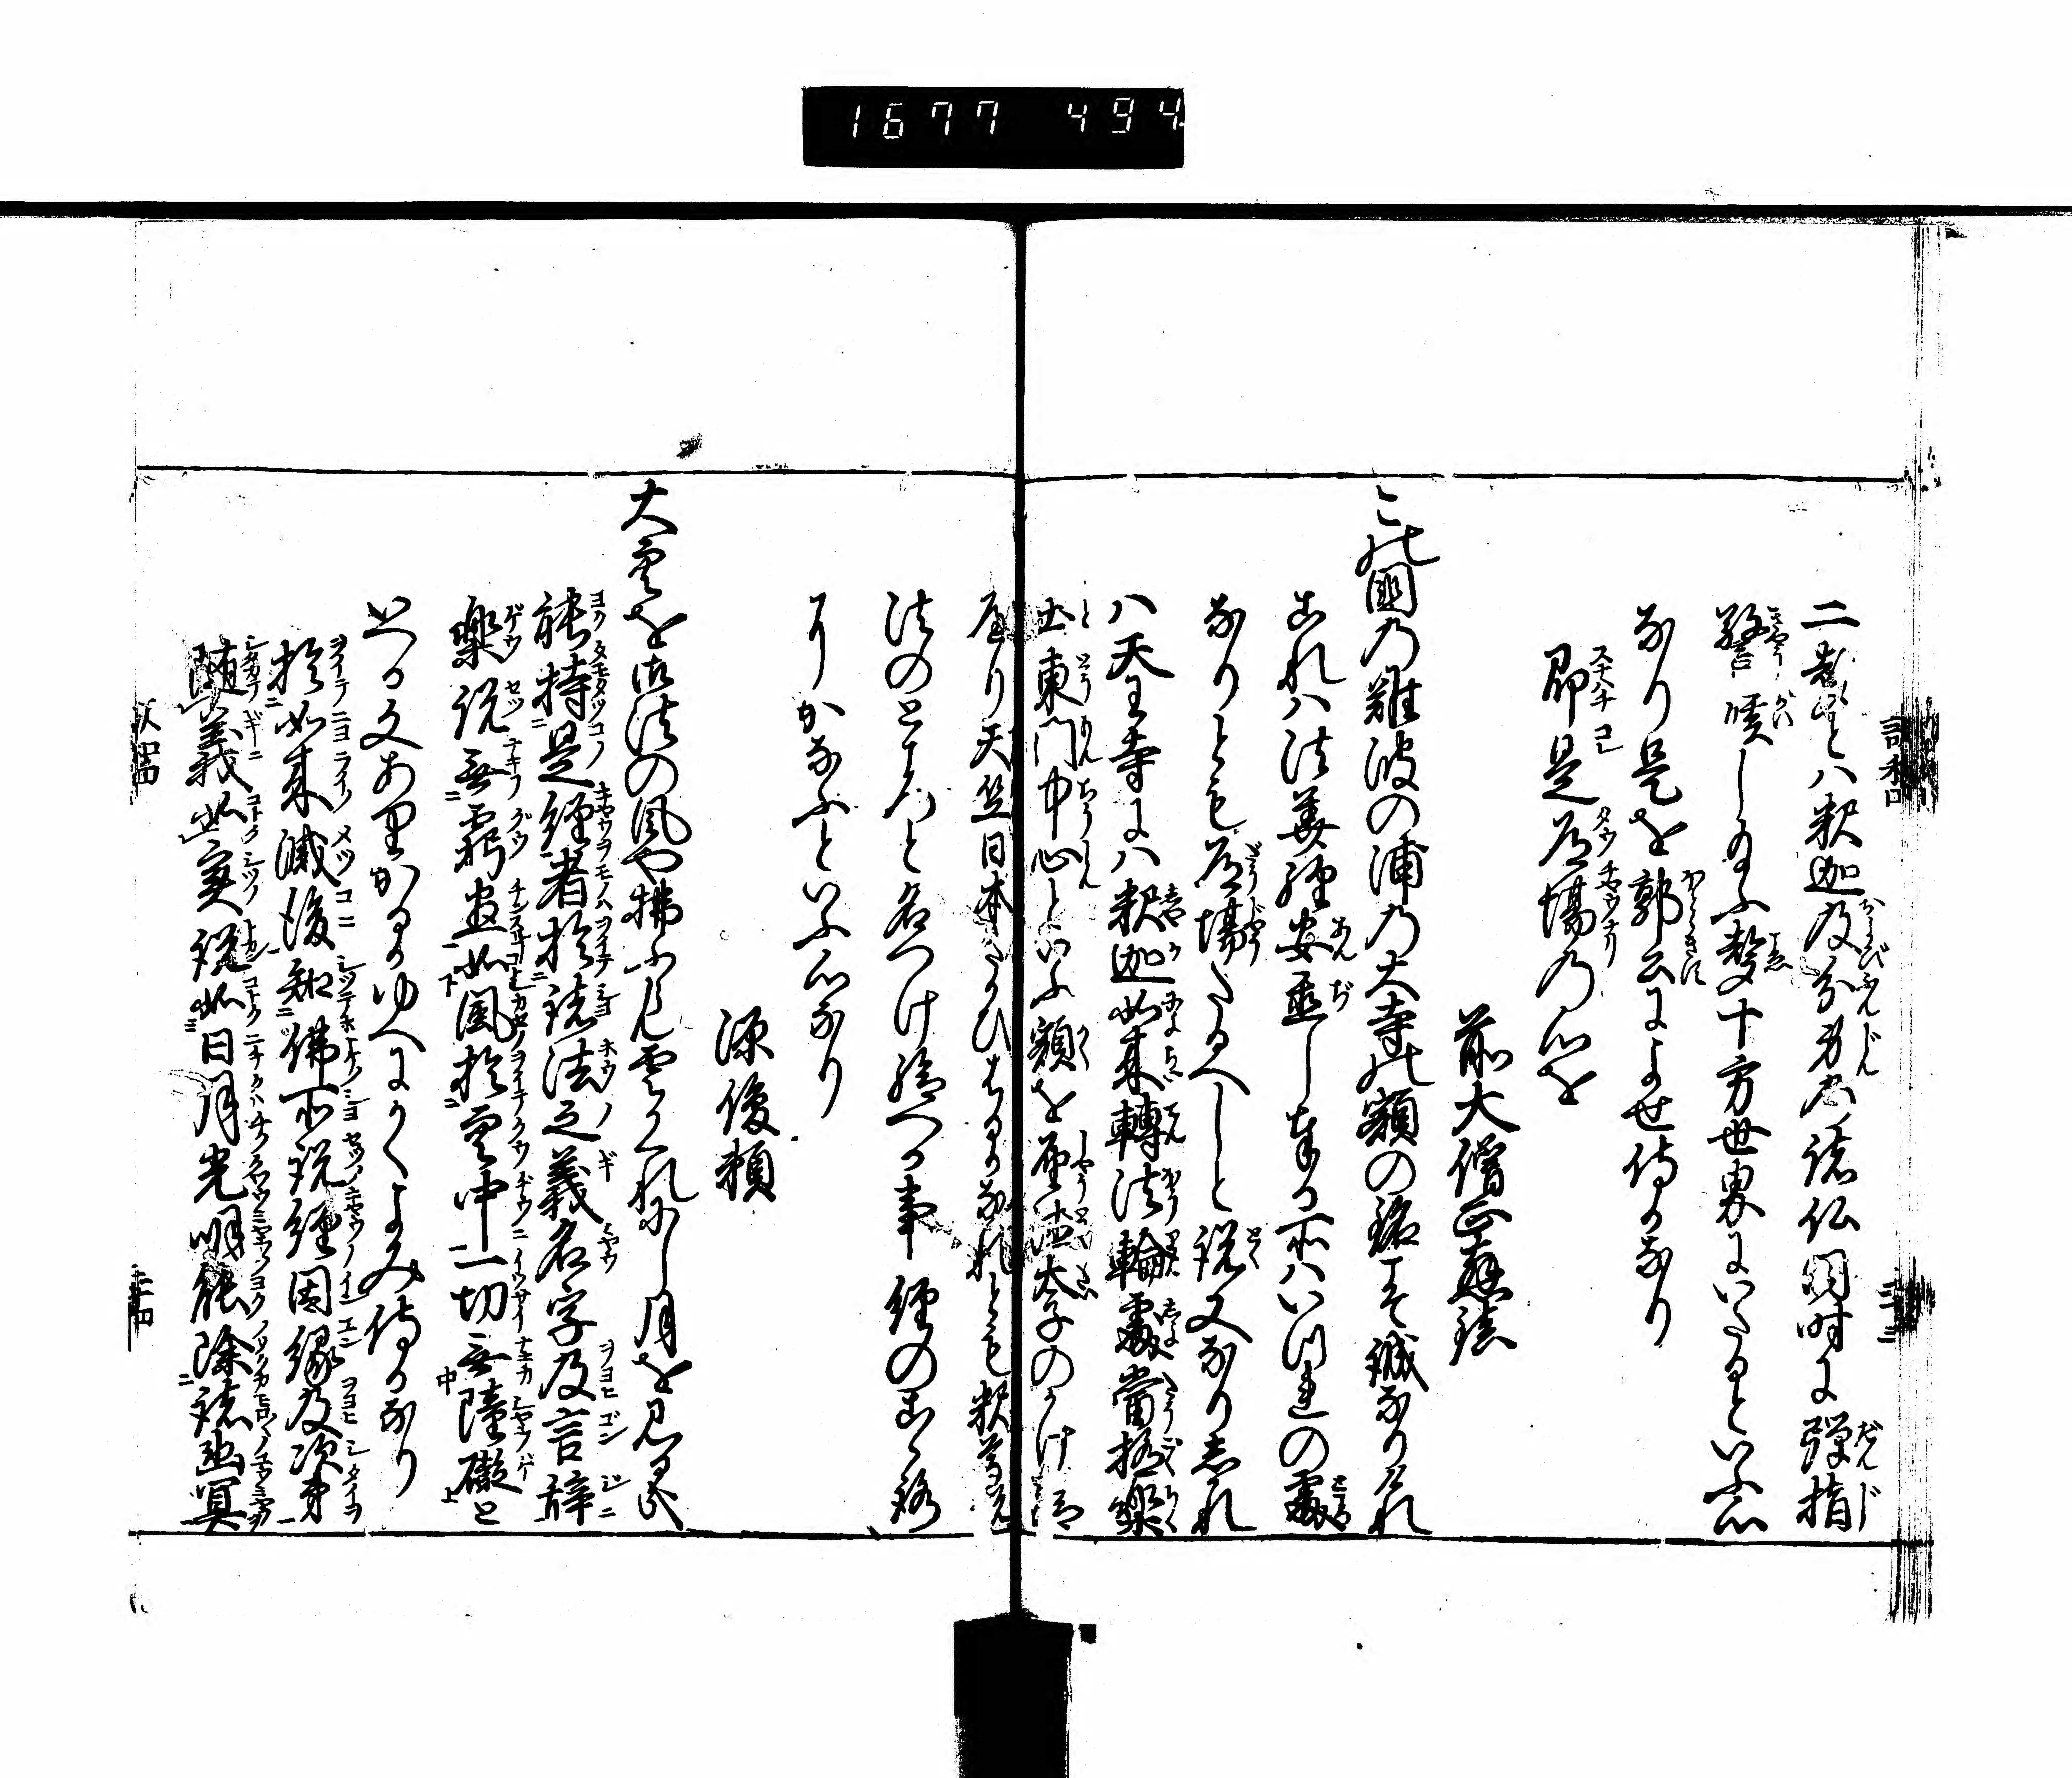 1677 494
二音とハ釈迦及分身の諸仏同時に弾指
謦咳し給ふ声十方世界にいたるといふ心
なり是を郭公によせ侍るなり
即是道場の心を
前大僧正慈鎮
この国の難波の浦の大寺の額の銘こそ誠なりけれ
これハ法華経安置し奉る所ハいづれの処
なりとも道場たるへしと説文なりされ
ハ天王寺にハ釈迦如来転法輪処当極楽
土東門中心といふ額を聖徳太子のかけ給
へり天竺日本たかひはるかなれとも釈尊説
法のところと名つけ給へる事経のこゝろ
にかなふといふ心なり
源俊頼
大空を御法の風や払ふらん雲かくれにし月を見るかな
能持是経者於諸法之義名字及言辞
楽説無窮尽如風於空中一切無障礙と
いへる文ありかるかゆへにかくよみ侍るなり
於如来滅後知仏所説経因縁及次第
随義如実説如日月光明能除諸幽冥